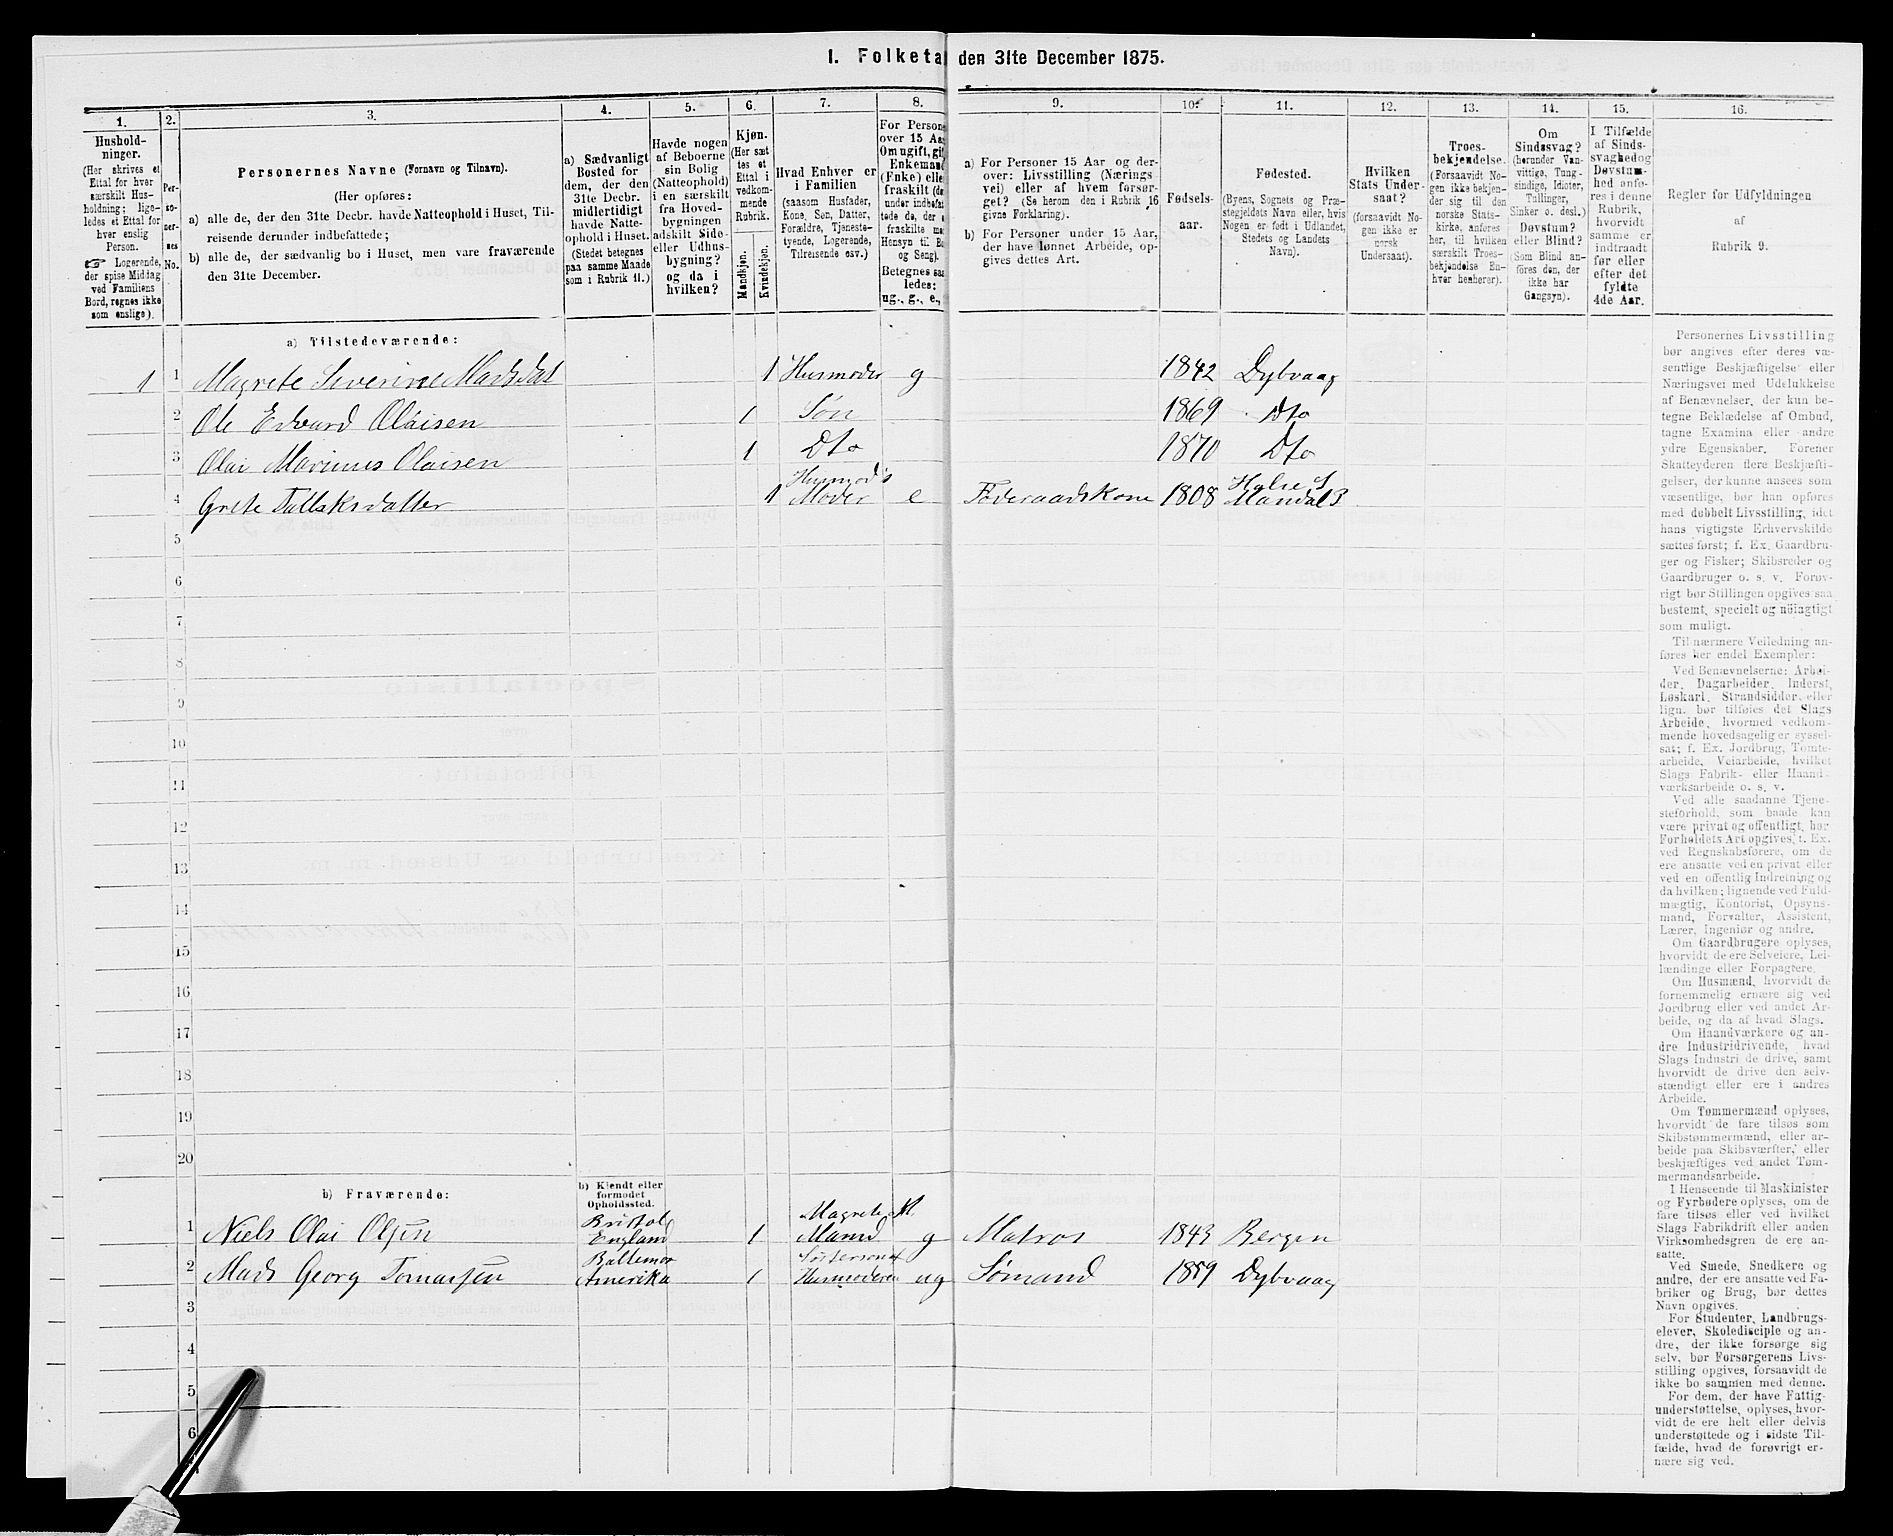 I. Folketal den 31te December 1875.
1.
Hushold-
ninger.
(Her skrives et
Ettal for hver
særskilt Hus-
holdning; lige-
ledes et Ettal for
hver enslig
Person.
☞ Logerende,
der spise Middag
ved Familiens
Bord, regnes ikke
som enslige).
2.
Per-
so-
ner-
nes
No.
3.
Personernes Navne (Fornavn og Tilnavn).
(Her opføres:
a) alle de, der den 31te Decbr. havde Natteophold i Huset, Til-
reisende derunder indbefattede;
b) alle de, der sædvanlig bo i Huset, men vare fraværende
den 31te December.
4.
a) Sædvanligt
Bosted for
dem, der den
31te Decbr.
midlertidigt
havde Natte-
ophold i Huset.
(Stedet betegnes
paa samme Maade
som i Rubrik 11.)
5.
Havde nogen
af Beboerne
sin Bolig
(Natteophold)
i en særskilt
fra Hoved-
bygningen
adskilt Side-
eller Udhus-
bygning?
og da i
hvilken?
6.
Kjøn.
(Her sæt
tes et
Ettal i
vedkom-
mende
Rubrik.
Mandkjøn.
Kvindekjøn.
7.
Hvad Enhver er
i Familien
(saasom Husfader,
Kone, Søn, Datter,
Forældre, Tjeneste-
tyende, Logerende,
Tilreisende osv.)
8.
For Person
over 15 Aa
Om ugift, gi
Enkemand
(Enke) elle
fraskilt (de
under indbefat
tede de, der e
fraskilte m
Hensyn til Bo
og Seng).
Betegnes saa
ledes:
ug., g., e.,
9.
a) For Personer 15 Aar og der-
over: Livsstilling (Nærings
vei) eller af hvem forsør-
get? (Se herom den i Rubrik 16
givne Forklaring).
b) For Personer under 15 Aar,
der have lønnet Arbeide, op-
gives dettes Art.
10.
Fødsels-
aar.
11.
Fødested.
(Byens, Sognets og Præ-
stegjeldets Navn eller, hvis
Nogen er født i Udlandet,
Stedets og Landets
Navn).
12.
Hvilken
Stats Under-
saat?
(forsaavidt No-
gen ikke er
norsk
Undersaat).
13.
Troes-
bekjendelse.
(Forsaavidt No-
gen ikke bekjen-
der sig til den
norske Stats-
kirke, anføres
her, til hvilken
særskilt Troes-
bekjendelse En-
hver henhører).
14.
Om
Sindssvag?
(herunder Van-
vittige, Tung-
sindige, Idioter,
Tullinger,
Sinker o. desl.)
Døvstum?
eller Blind?
(Som Blind an-
føres den, der
ikke har
Gangsyn).
15.
I Tilfælde
af Sinds-
svaghed og
Døvstum-
hed anfø-
res i denne
Rubrik,
hvorvidt
samme er
indtraadt
før eller
efter det
fyldte
4de Aar.
16.
Regler for Udfyldningen
af
Rubrik 9.
a) Tilstedeværende:
1 1 Magrete Severine Madsdat 1 Husmoder g 1842 Dybvaag
2 Ole Edvard Olaisen 1 Søn 1869 Dto
3 Olai Marinus Olaisen 1 Dto 1870 Dto
Husmod's Halse S
4 Grete Tallaksdatter 1 Moder e Føderaadskone 1808 Mandal P
5
6
7
8
9
10
11
12
13
14
15
16
17
18
19
20
b) Fraværende:
b) Kjendt eller
formodet
Opholdssted.
Bristol Magrete M.
1 Niels Olai Olsen England 1 Mand g Matros 1843 Bergen
Baltemor Søstersøn af
2 Mads Georg Tomassen Amerika 1 Husmoderen ug Sømand 1859 Dybvaag
3
4
5
6
Personernes Livsstilling
bør angives efter deres væ-
sentlige Beskjæftigelse eller
Næringsvei med Udelukkelse
af Benævnelser, der kun be-
tegne Beklædelse af Ombud,
tagne Examina eller andre
ydre Egenskaber. Forener
Skatteyderen flere Beskjæfti-
gelser, der kunne ansees som
væsentlige, bør han opføres
med dobbelt Livsstilling, idet
hans vigtigste Erhvervskilde
sættes først; f. Ex. Gaardbru-
ger og Fisker; Skibsreder og
Gaardbruger o. s. v. Forøv-
rigt bør Stillingen opgives saa
bestemt, specielt og nöiagtigt
som muligt.
Til nærmere Veiledning an-
føres her endel Exempler:
Ved Benævnelserne: Arbei-
der, Dagarbeider, Inderst,
Løskarl, Strandsidder eller
lign. bør tilføies det Slags
Arbeide, hvormed vedkom-
mende hovedsagelig er syssel-
sat; f. Ex. Jordbrug, Tomte-
arbeide, Veiarbeide, hvilket
Slags Fabrik- eller Haand-
værksarbeide o. s. v.
Ved alle saadanne Tjene-
steforhold, som baade kan
være privat og offentligt, bør
Forholdets Art opgives, t. Ex.
ved Regnskabsførere, om de
ere ansatte ved en privat eller
ved en offentlig Indretning og
da hvilken; lignende ved Fuld-
mægtig, Kontorist, Opsyns-
mand, Forvalter, Assistent,
Lærer, Ingeniør og andre.
Om Gaardbrugere oplyses,
hvorvidt de ere Selveiere, Lei-
lændinge eller Forpagtere.
Om Husmænd, hvorvidt de
fornemmelig ernære sig ved
Jordbrug eller ved andet Ar-
beide, og da af hvad Slags.
Om Haandværkere og an-
dre Industridrivende, hvad
Slags Industri de drive, samt
hvorvidt de drive den selv-
stændigt eller ere i andres
Arbeide.
Om Tømmermænd oplyses,
hvorvidt de fare tilsøs som
Skibstømmermænd, eller ar-
beide paa Skibsværfter, eller
beskjæftiges ved andet Tøm-
mermandsarbeide.
I Henseende til Maskinister
og Fyrbødere oplyses, om de
fare tilsøs eller ved hvilket
Slags Fabrikdrift eller anden
Virksomhedsgren de ere an-
satte.
Ved Smede, Snedkere og
andre, der ere ansatte ved Fa-
briker og Brug, bør dettes
Navn opgives.
For Studenter, Landbrugs-
elever, Skoledisciple og an-
dre, der ikke forsørge sig
selv, bør Forsørgerens Livs-
stilling opgives, forsaavidt de
ikke bo sammen med denne.
For dem, der have Fattig-
understøttelse, oplyses, hvor-
vidt de ere helt eller delvis
understøttede og i sidste Til-
fælde, hvad de forøvrigt er-
nære sig ved.